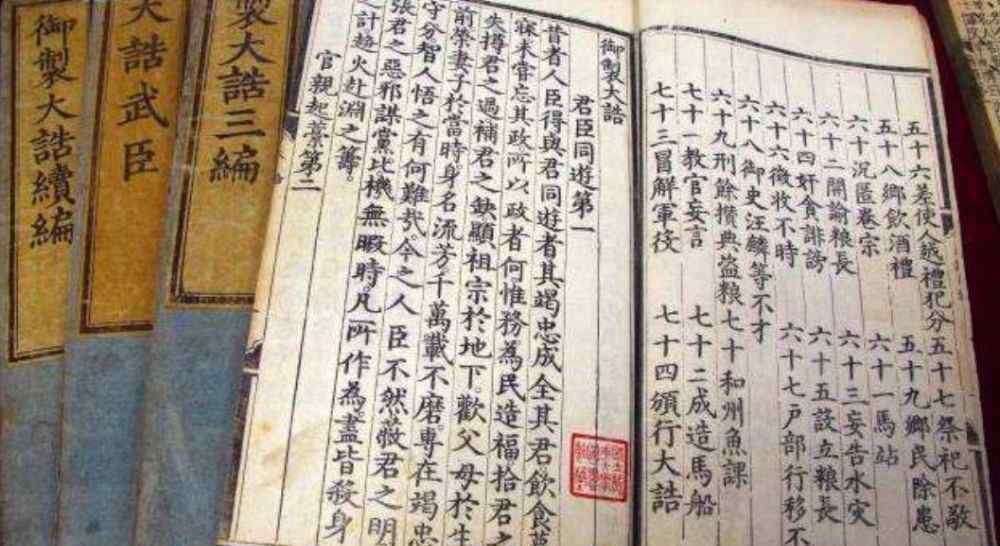 五十六差使人越禮犯分 五十七祭祀不敬
五十八鄉飲酒禮 五十九鄉民除患
六十沉匿卷宗 六十一馬站
六十二閑諭粮長 六十三妄告水灾
六十四奸貪誹謗 六十五設立粮長
六十六徵收不時 六十七戶部行移不
六十八御史汪麟等不才
六十九刑餘攢典盜粮 七十和州魚課
七十一教官妄言 七十二成造馬船
七十三冒解軍役 七十四頒行大誥
御製大誥
君臣同遊第一
昔者人臣得與君同遊者其竭忠成全其君飲食夢
寐未嘗忘其政所以政者何惟務為民造福拾君之
失撙君之過補君之缺顯祖宗於地下歡父母於生
前榮妻子於當時身名流芳千萬載不磨專在竭忠
守分智人悟之有何難哉今之人臣不然蔽君之明
張君之惡邪謀黨比機無暇時凡所作為盡皆殺身
之計趨火赴淵之籌
官親起藁第二
製大誥三編
大誥武臣
御製大誥續編